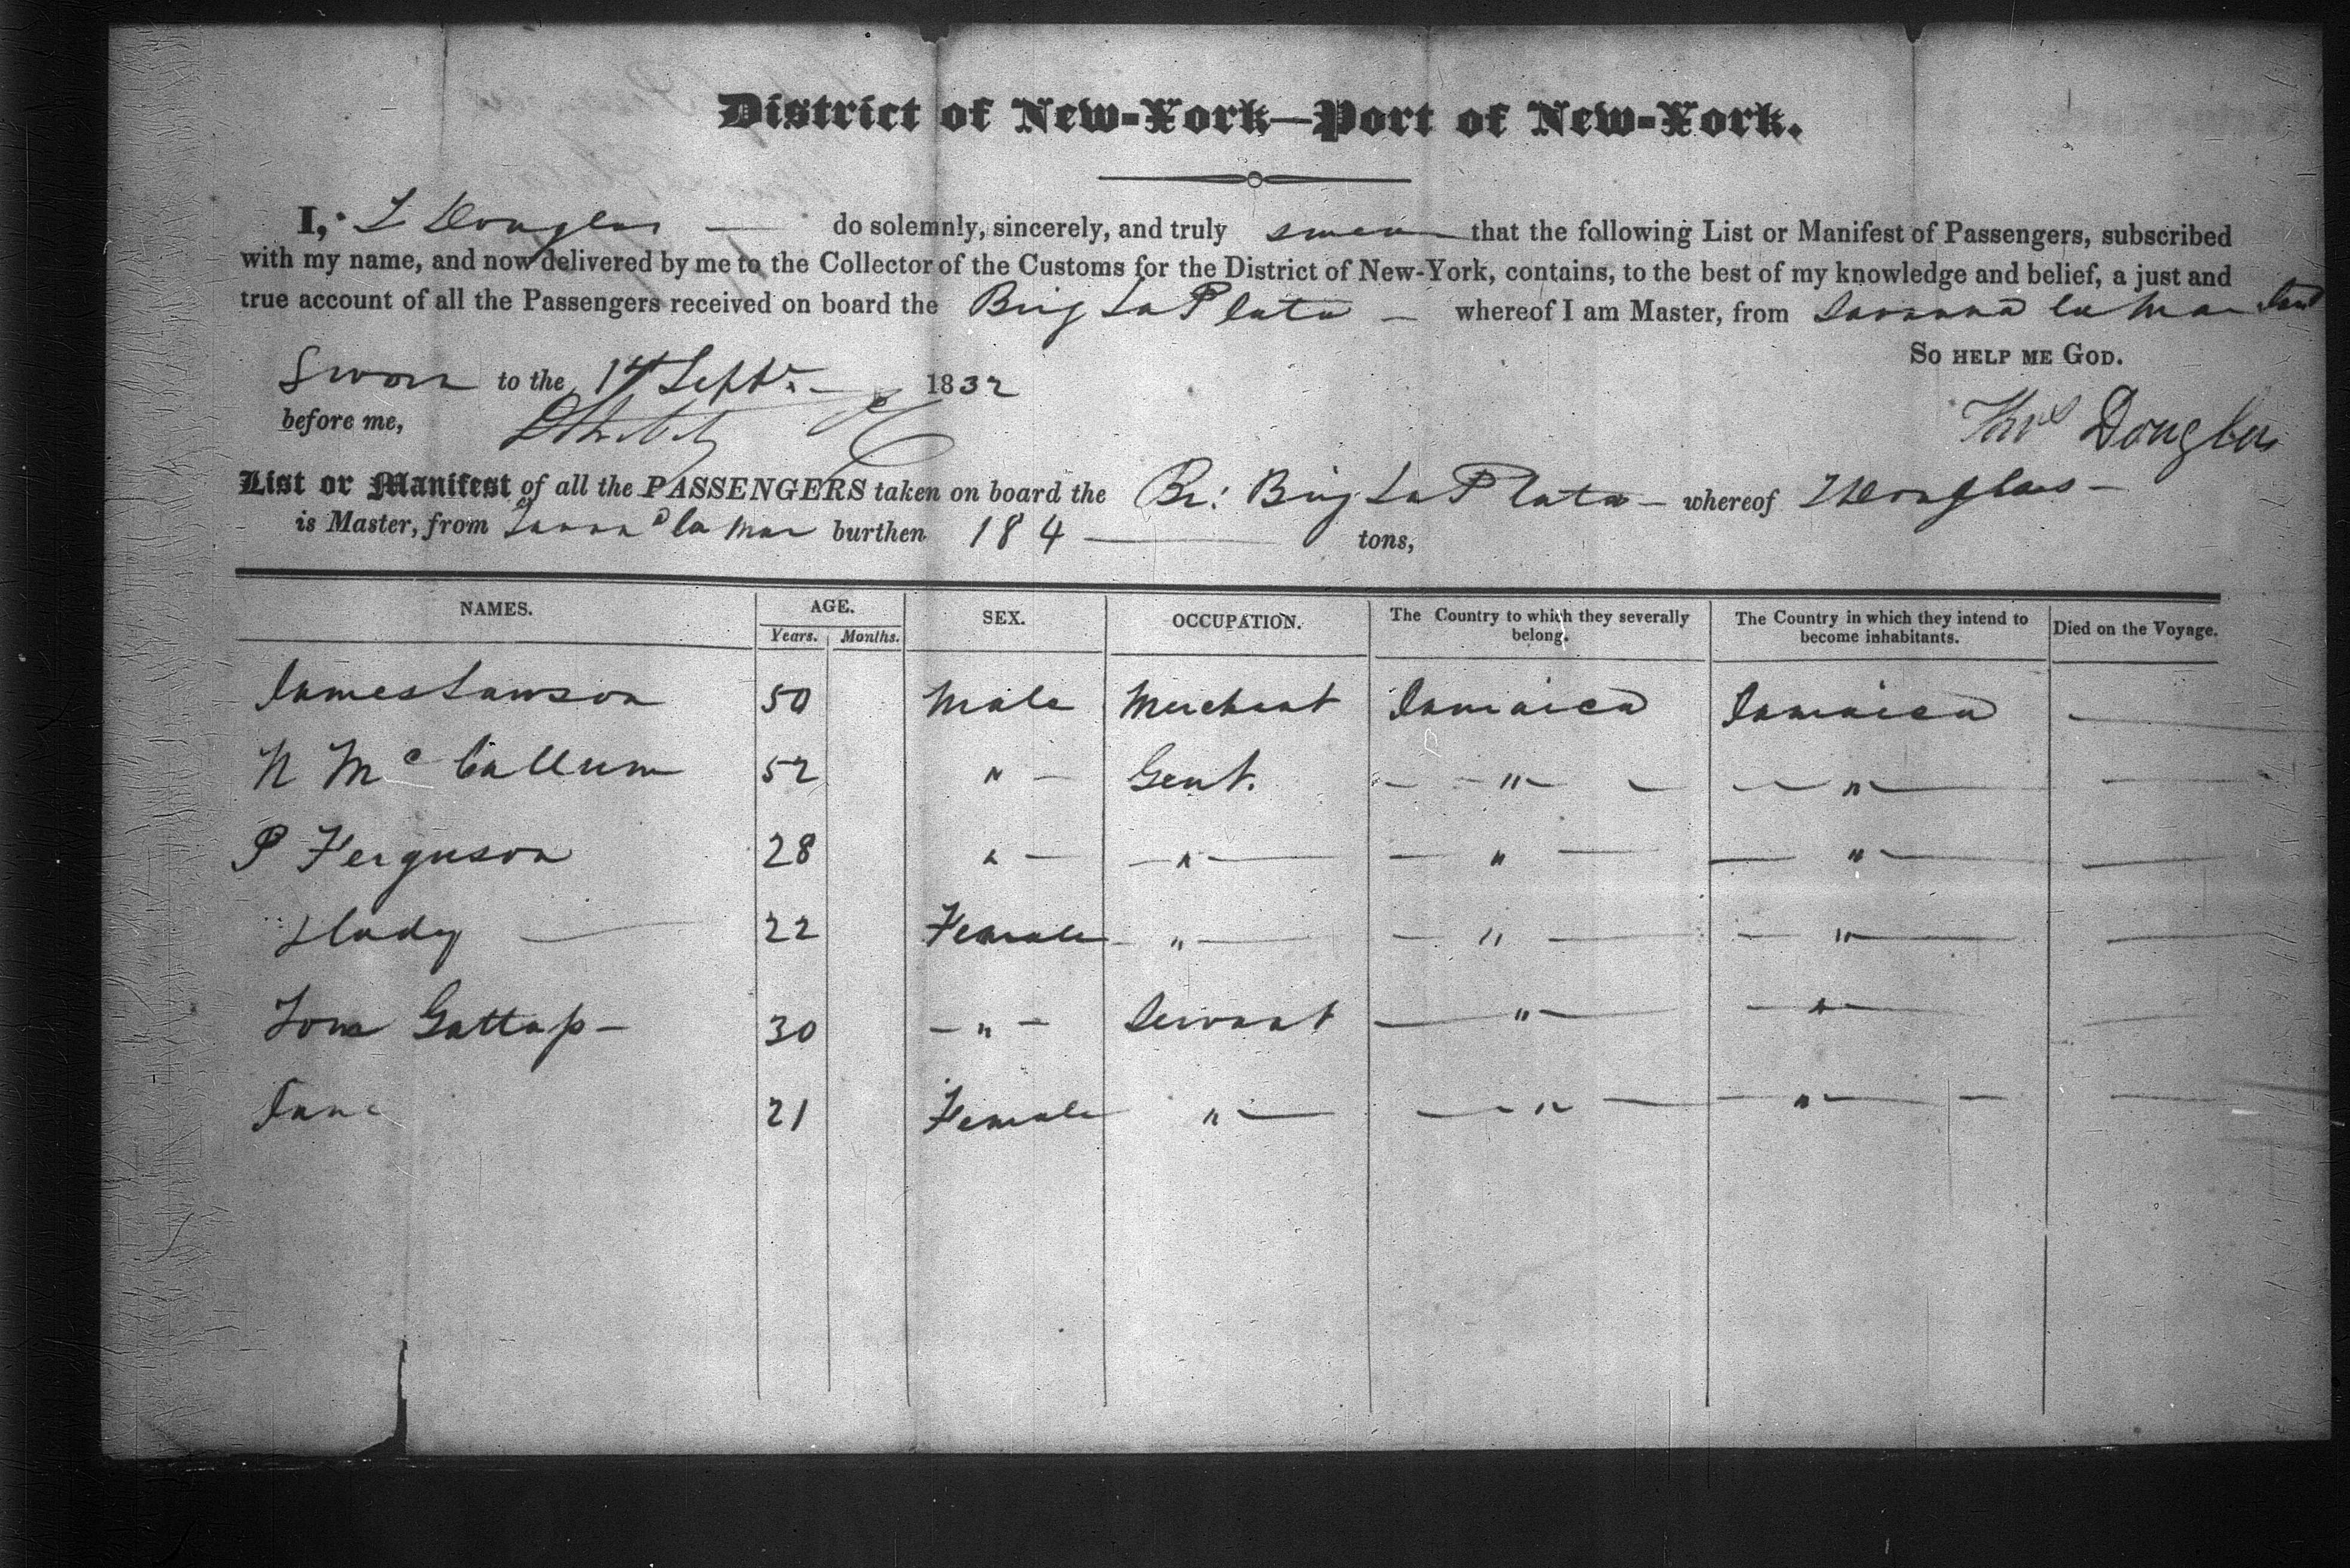 District of New-York—Port of New-York.
I, T Douglas — do solemnly, sincerely, and truly swear that the following List or Manifest of Passengers, subscribed
with my name, and now delivered by me to the Collector of the Customs for the District of New-York, contains, to the best of my knowledge and belief, a just and
true account of all the Passengers received on board the Brig La Plata — whereof I am Master, from Savanna la Mar
So help me God.
Sworn to the 14 Septr. — 1832
before me,
Thos Douglas
List or Manifest of all the PASSENGERS taken on board the Br: Brig La Plata — whereof T Douglas —
is Master, from Savana la Mar burthen 184 — tons,
NAMES. AGE. SEX. OCCUPATION. The Country to which they severally belong. The Country in which they intend to become inhabitants. Died on the Voyage.
Years. Months.
James Lawson 50 Male Merchant Jamaica Jamaica —
N McCallum 52 " — Gent. — " — — " — —
P Ferguson 28 " — — " — — " — — " — —
& lady — 22 Female — " — — " — — " — —
Tom Gattap — 30 — " — Servant — " — — " — —
Jane 21 Female " — — " — — " — —